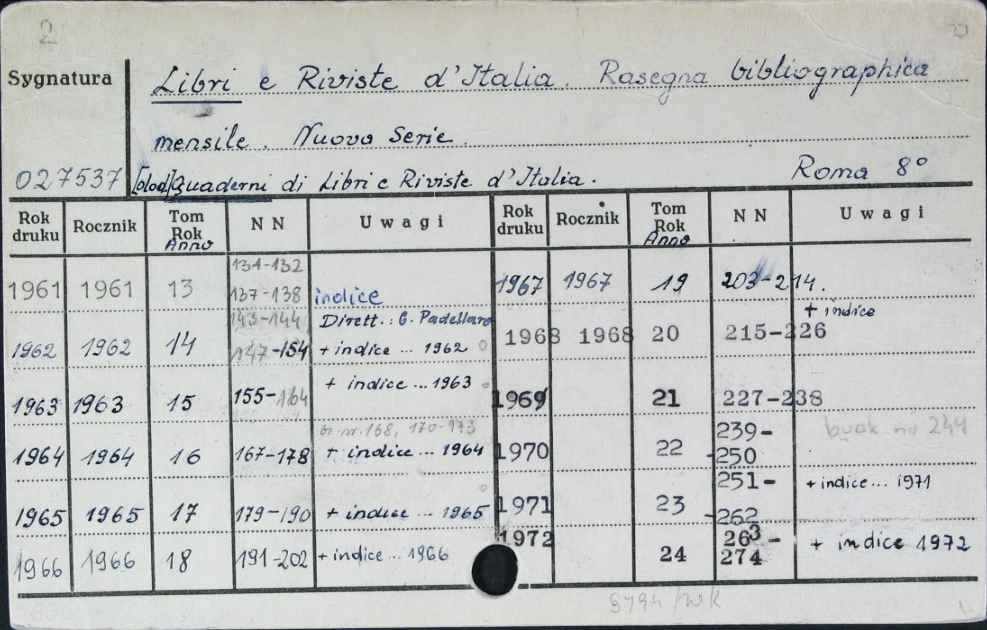 2
Sygnatura
Libri e Riviste d'Italia. Rasegna bibliographica
mensile. Nuova Serie.
027537 [dod] Quaderni di Libri e Riviste d'Italia. Roma 8°
Rok druku Rocznik Tom Rok Anno NN Uwagi Rok druku Rocznik Tom Rok Anno NN Uwagi
131-132
1961 1961 13 137-138 indice 1967 1967 19 203-214.
143-144 Dirett.: G. Padellaro + indice
1962 1962 14 147-154 + indice ... 1962 1968 1968 20 215-226
1963 1963 15 155-164 + indice ... 1963 1969 21 227-238
br. nr. 168, 170-173 239- brak nr 244
1964 1964 16 167-178 + indice ... 1964 1970 22 -250
251- + indice ... 1971
1965 1965 17 179-190 + indice ... 1965 1971 23 -262
1972 263-
1966 1966 18 191-202 + indice ... 1966 24 274 + indice 1972